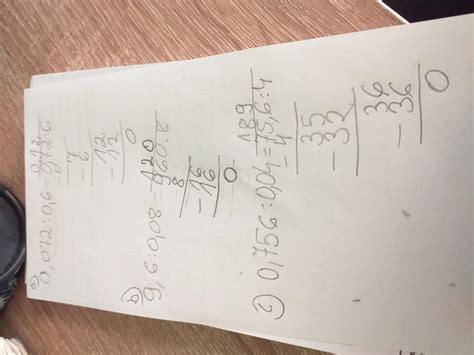 a)
0,12
0,072:0,6=0,72:6
7
-6
12
-12
0
b)
120
9,6:0,08=960:8
8
16
-16
0
c)
189
0,756:0,04=75,6:4
-4
35
-32
36
-36
0